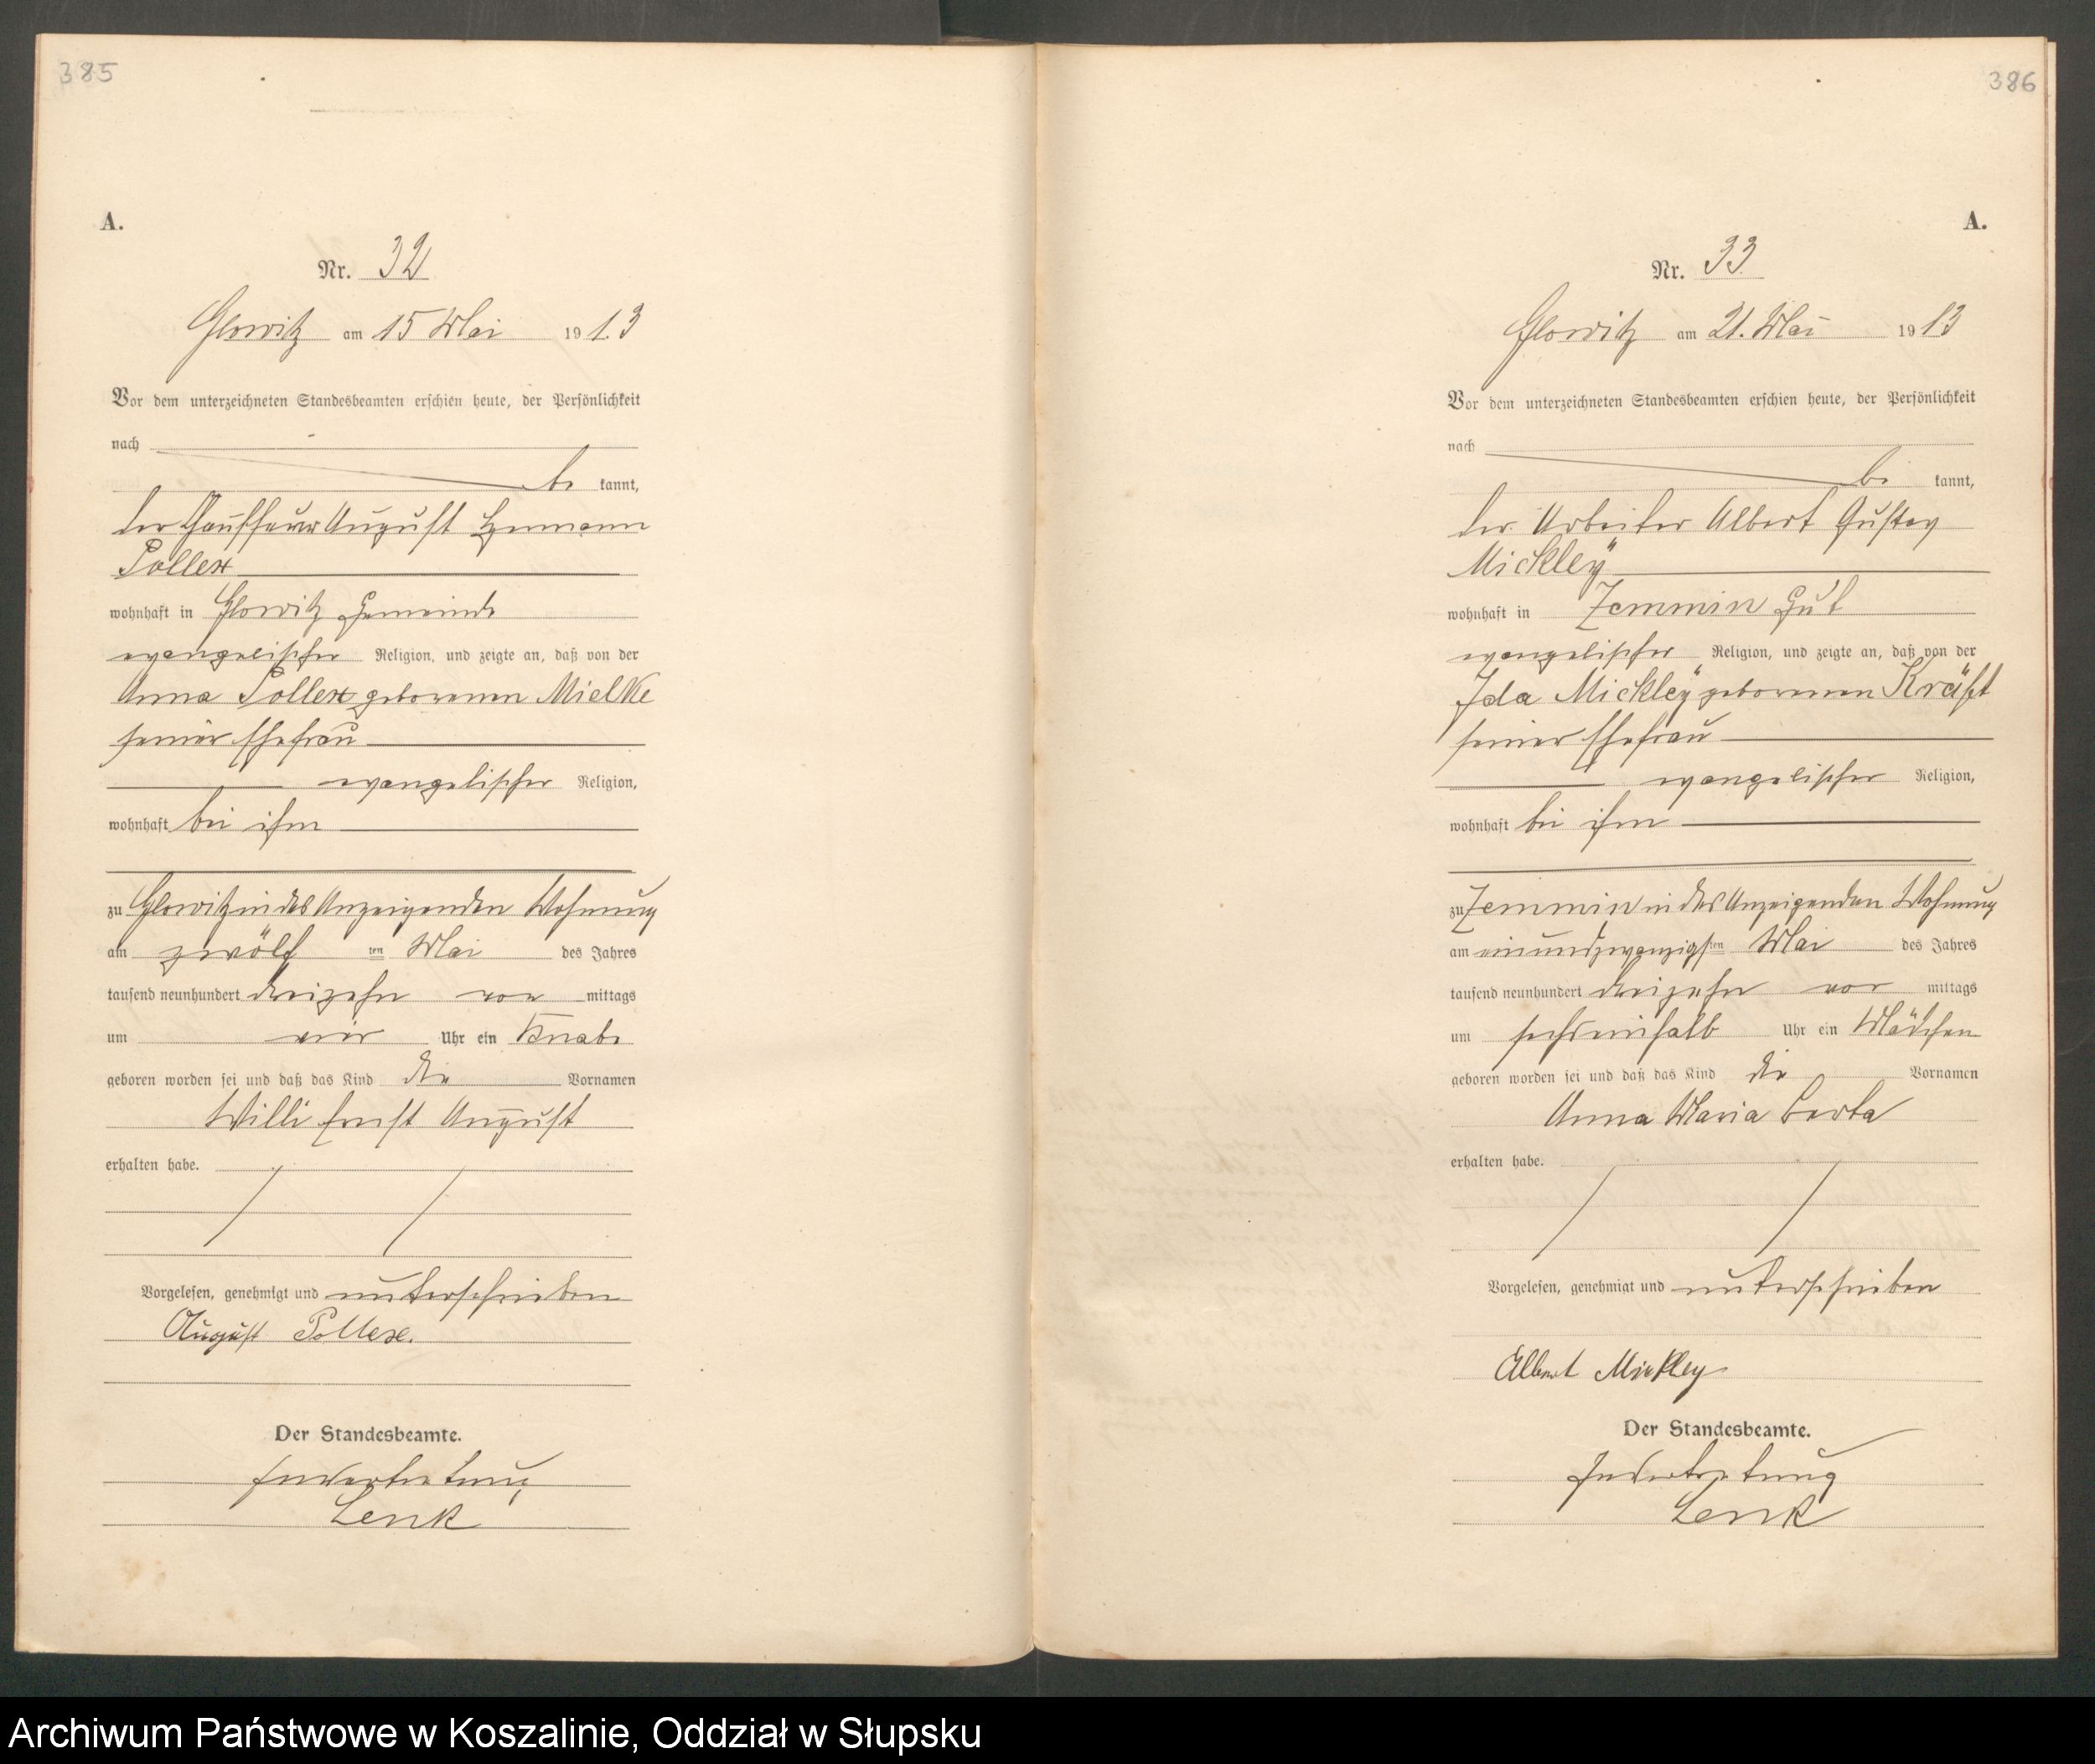 385
A.
Nr. 32
Glowitz am 15 Mai 1913
Vor dem unterzeichneten Standesbeamten erschien heute, der Persönlichkeit
nach
be kannt,
der Chauffeur August Hermann
Pollex
wohnhaft in Glowitz Gemeinde
evangelischer Religion, und zeigte an, daß von der
Anna Pollex geborenen Mielke
seiner Ehefrau
evangelischer Religion,
wohnhaft bei ihm
zu Glowitz in des Anzeigenden Wohnung
am zwölf ten Mai des Jahres
tausend neunhundert dreizehn vor mittags
um vier Uhr ein Knabe
geboren worden sei und daß das Kind die Vornamen
Willi Ernst August
erhalten habe.
Vorgelesen, genehmigt und unterschrieben
August Pollex.
Der Standesbeamte.
In Vertretung
Lenk
386
A.
Nr. 33
Glowitz am 21. Mai 1913
Vor dem unterzeichneten Standesbeamten erschien heute, der Persönlichkeit
nach
be kannt,
der Arbeiter Albert Gustav
Mickley
wohnhaft in Zemmin Gut
evangelischer Religion, und zeigte an, daß von der
Ida Mickley geborenen Kräft
seiner Ehefrau
evangelischer Religion,
wohnhaft bei ihm
zu Zemmin in des Anzeigenden Wohnung
am einundzwanzigsten Mai des Jahres
tausend neunhundert dreizehn vor mittags
um sechseinhalb Uhr ein Mädchen
geboren worden sei und daß das Kind die Vornamen
Anna Maria Berta
erhalten habe.
Vorgelesen, genehmigt und unterschrieben
Albert Mickley
Der Standesbeamte.
In Vertretung
Lenk
Archiwum Państwowe w Koszalinie, Oddział w Słupsku